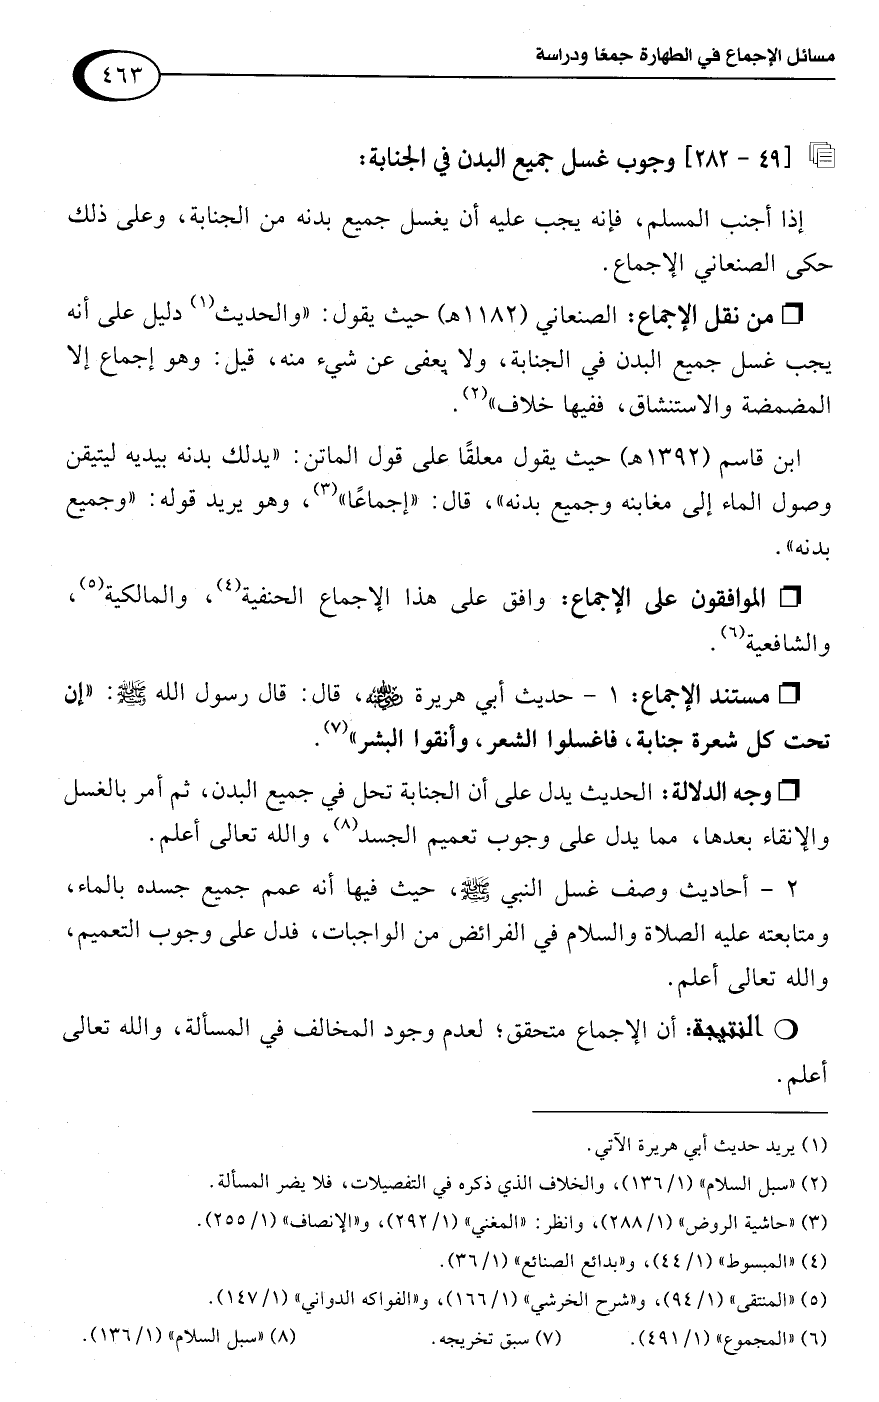 مسائل الإجماع في الطهارة جمعًا ودراسة
٤٦٣
[٤٩ - ٢٨٢] وجوب غسل جميع البدن في الجنابة:
إذا أجنب المسلم، فإنه يجب عليه أن يغسل جميع بدنه من الجنابة، وعلى ذلك
حكى الصنعاني الإجماع.
❏ من نقل الإجماع: الصنعاني (١١٨٢هـ) حيث يقول: «والحديث(١) دليل على أنه
يجب غسل جميع البدن في الجنابة، ولا يعفى عن شيء منه، قيل: وهو إجماع إلا
المضمضة والاستنشاق، ففيها خلاف»(٢).
ابن قاسم (١٣٩٢هـ) حيث يقول معلقًا على قول الماتن: «يدلك بدنه بيديه ليتيقن
وصول الماء إلى مغابنه وجميع بدنه»، قال: «إجماعًا»(٣)، وهو يريد قوله: «وجميع
بدنه».
❏ الموافقون على الإجماع: وافق على هذا الإجماع الحنفية(٤)، والمالكية(٥)،
والشافعية(٦).
❏ مستند الإجماع: ١ - حديث أبي هريرة رضي الله عنه، قال: قال رسول الله ﷺ: «إن
تحت كل شعرة جنابة، فاغسلوا الشعر، وأنقوا البشر»(٧).
❏ وجه الدلالة: الحديث يدل على أن الجنابة تحل في جميع البدن، ثم أمر بالغسل
والإنقاء بعدها، مما يدل على وجوب تعميم الجسد(٨)، والله تعالى أعلم.
٢ - أحاديث وصف غسل النبي ﷺ، حيث فيها أنه عمم جميع جسده بالماء،
ومتابعته عليه الصلاة والسلام في الفرائض من الواجبات، فدل على وجوب التعميم،
والله تعالى أعلم.
❍ النتيجة: أن الإجماع متحقق؛ لعدم وجود المخالف في المسألة، والله تعالى
أعلم.
(١) يريد حديث أبي هريرة الآتي.
(٢) «سبل السلام» (١/ ١٣٦)، والخلاف الذي ذكره في التفصيلات، فلا يضر المسألة.
(٣) «حاشية الروض» (١/ ٢٨٨)، وانظر: «المغني» (١/ ٢٩٢)، و«الإنصاف» (١/ ٢٥٥).
(٤) «المبسوط» (١/ ٤٤)، و«بدائع الصنائع» (١/ ٣٦).
(٥) «المنتقى» (١/ ٩٤)، و«شرح الخرشي» (١/ ١٦٦)، و«الفواكه الدواني» (١/ ١٤٧).
(٦) «المجموع» (١/ ٤٩١). (٧) سبق تخريجه. (٨) «سبل السلام» (١/ ١٣٦).